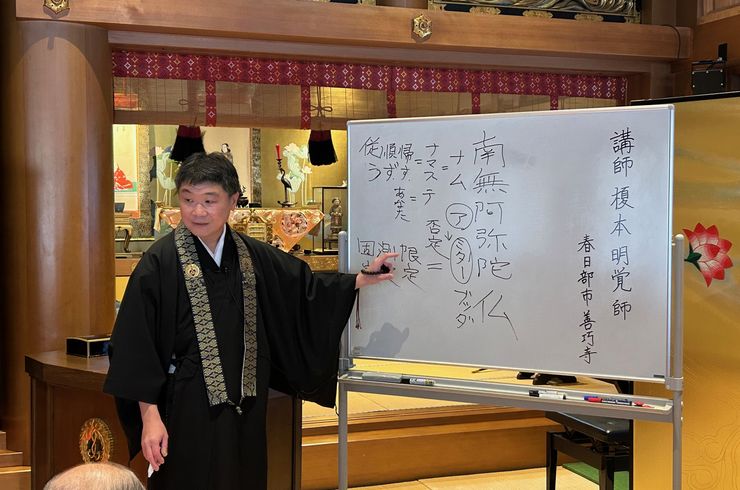 講師 榎本明覚師
春日部市 善巧寺
南無阿弥陀仏
ナム ア ミター ブッダ
=
否定 =
ナマステ
= = あなた
帰す
順ず
従う
限定